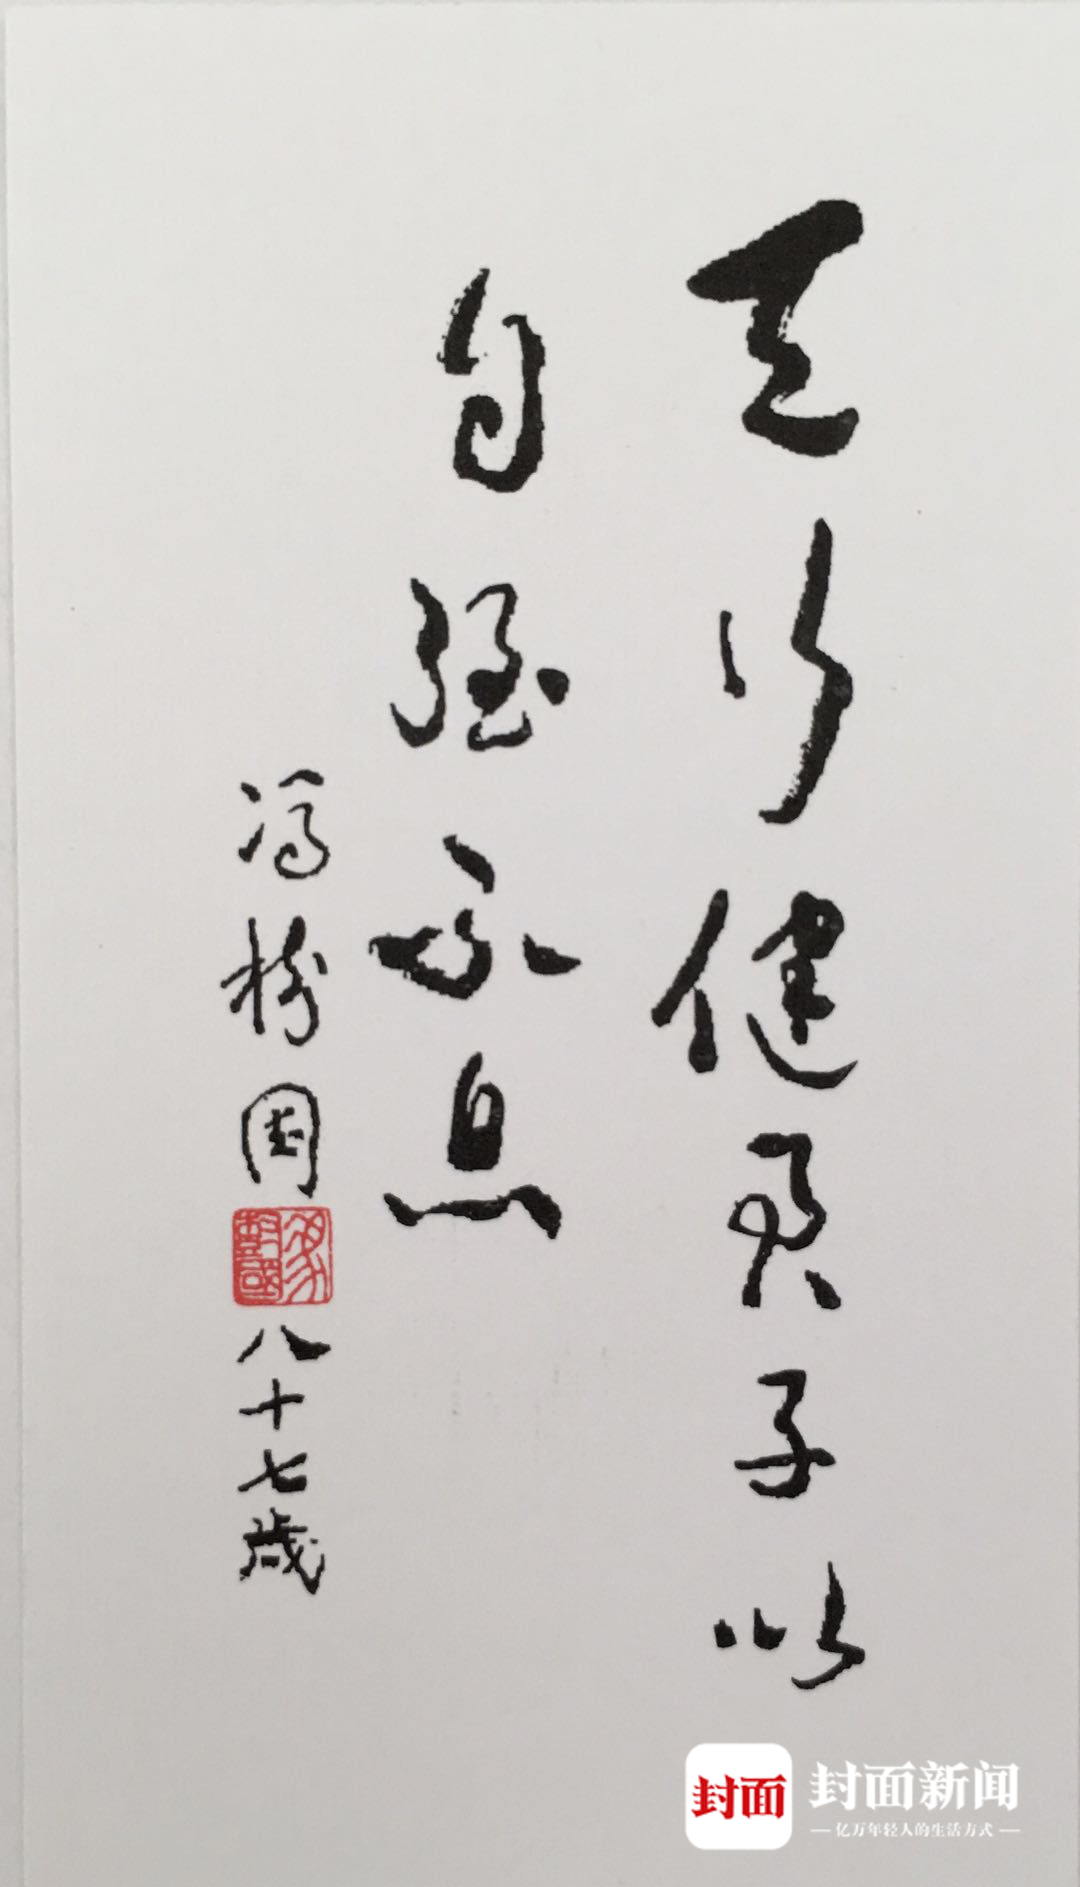 天行健君子以
自强不息
八十七歲
封面
封面新闻
— 亿万年轻人的生活方式 —